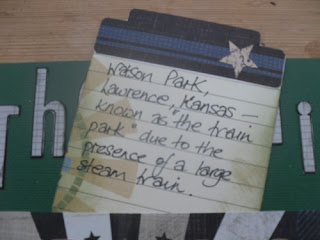 Watson Park,
Lawrence, Kansas —
known as "the train
park" due to the
presence of a large
steam train.
th
i